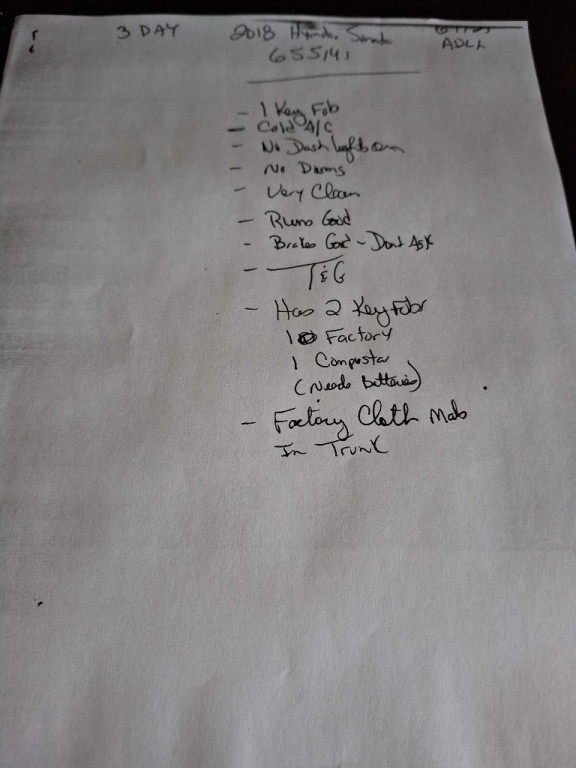 3 DAY 2018
ADLL
655141
- 1 Key Fob
- Cold A/C
- No Dash
- No
- Very Clean
- Runs Good
- Brakes Good - Don't Ask
- T&G
- Has 2 Key Fobs
1 Factory
1 Compustar
(Needs Batteries)
- Factory Cloth Mats
In Trunk